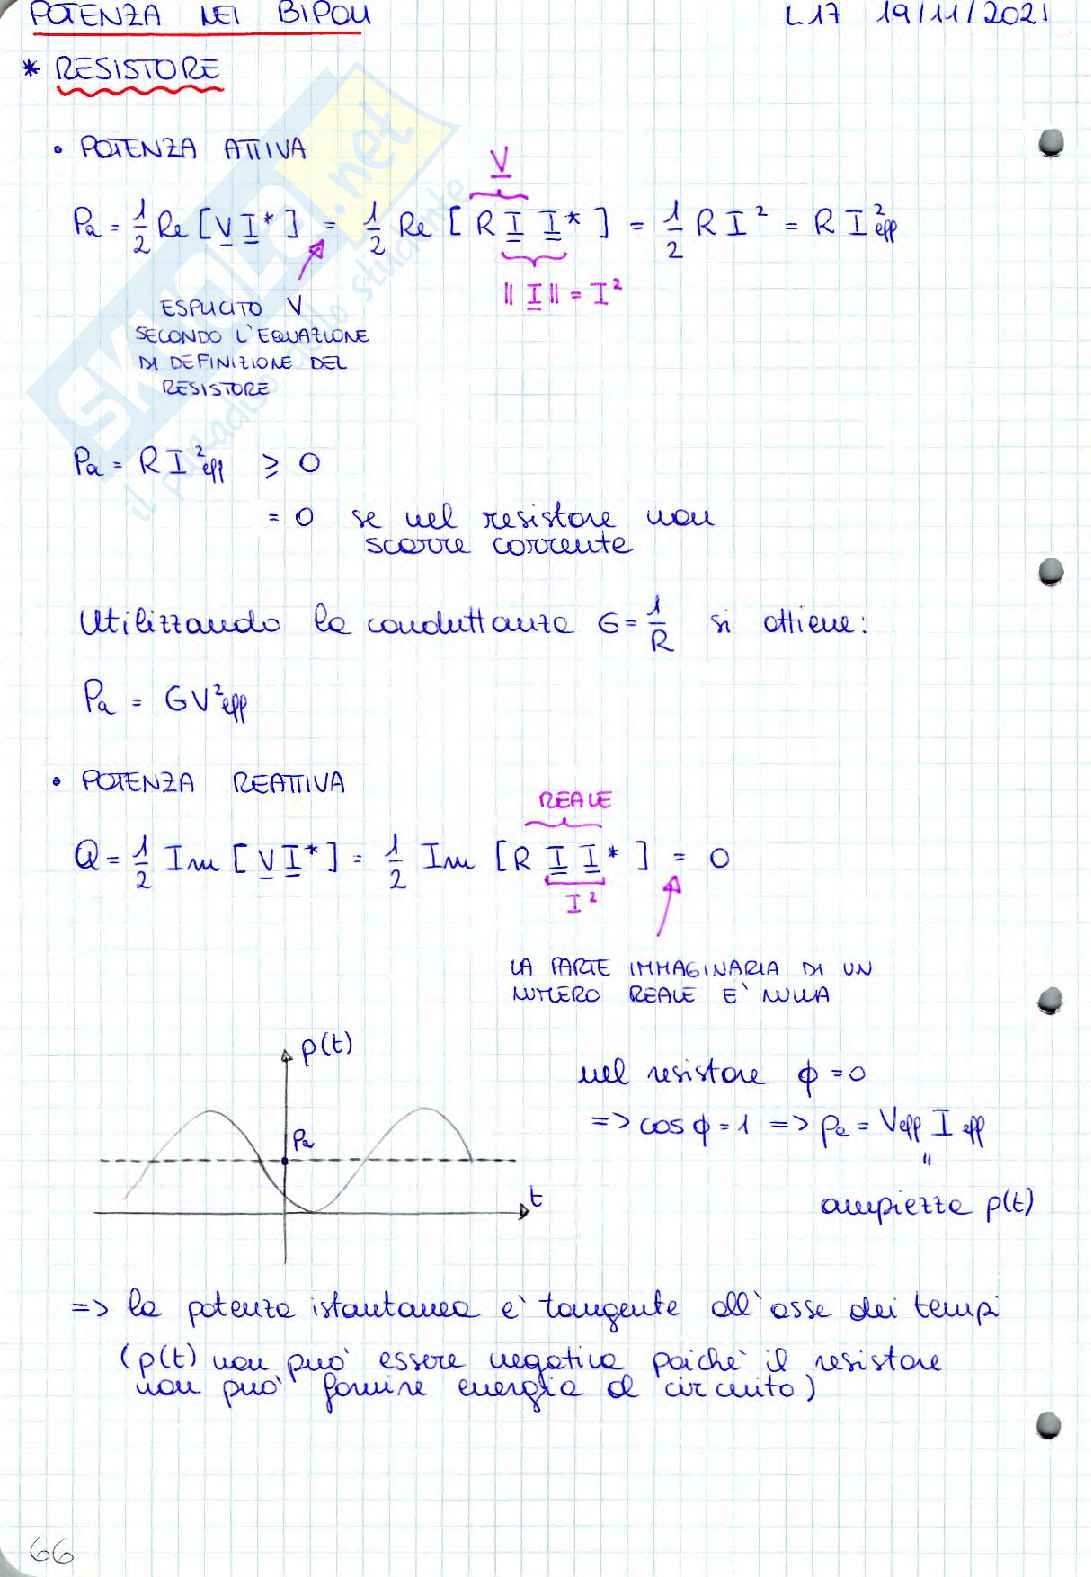 POTENZA NEI BIPOLI
L17 19/11/2021
* RESISTORE
• POTENZA ATTIVA
V
Pa = 1/2 Re [V I*] = 1/2 Re [R I I*] = 1/2 R I² = R I²eff
|| I || = I²
ESPLICITO V
SECONDO L'EQUAZIONE
DI DEFINIZIONE DEL
RESISTORE
Pa = R I²eff ⩾ 0
= 0 se nel resistore non
scorre corrente
Utilizzando la conduttanza G = 1/R si ottiene:
Pa = GV²eff
• POTENZA REATTIVA
REALE
Q = 1/2 Im [V I*] = 1/2 Im [R I I*] = 0
I²
LA PARTE IMMAGINARIA DI UN
NUMERO REALE E' NULLA
p(t)
Pa
t
nel resistore ϕ = 0
=> cos ϕ = 1 => pa = Veff I eff
"
ampiezza p(t)
=> la potenza istantanea e' tangente all'asse dei tempi
(p(t) non puo' essere negativa poiche' il resistore
non puo' fornire energia al circuito)
66
SKUOLA.net
il paradiso dello studente